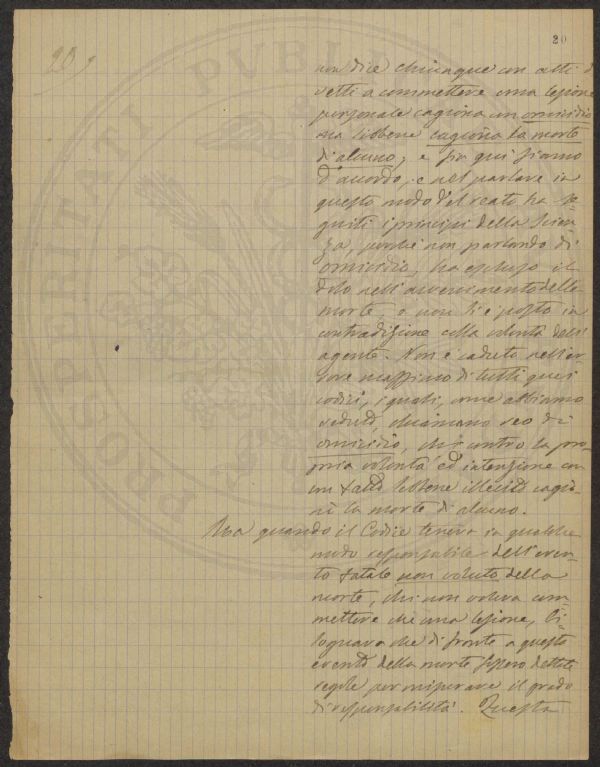 20
20
non dice chiunque con atti di
retti a commettere una lesione
personale cagiona un omicidio
ma sibbene cagiona la morte
di alcuno; e fin qui siamo
d'accordo, e nel parlare in
questo modo del reato ha se
guiti i principi della scien
za, perché non parlando di
omicidio, ha escluso il
dolo nell'avvenimento della
morte, e non si è posto in
contradizione colla volontà dell'
agente. Non è caduto nell'er
rore massimo di tutti quei
codici, i quali, come abbiamo
veduto, chiamano reo di
omicidio, chi contro la pro
pria volontà ed intenzione con
un fatto sebbene illecito cagio
ni la morte di alcuno.
Ma quando il Codice teneva in qualche
modo responsabile dell'even
to fatale non voluto della
morte, chi non voleva com
mettere che una lesione, bi
sognava che di fronte a questo
evento della morte fossero dettate
regole per misurare il grado
di responsabilità. Questa
PRO PERITATI PVBLI